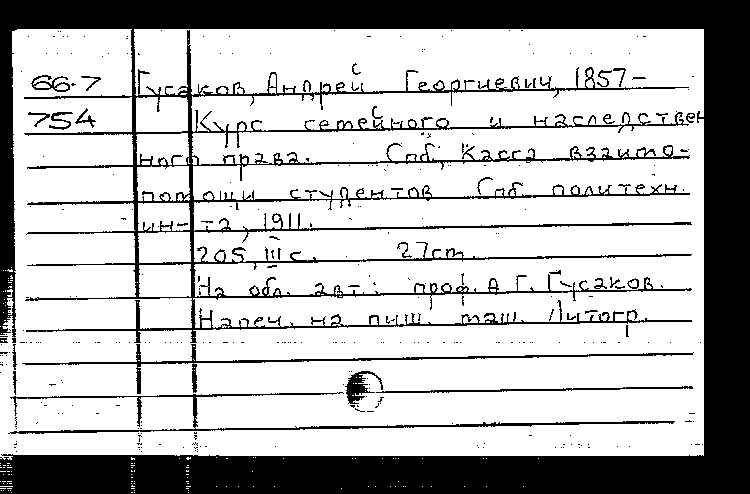 66-7 Гусаков, Андрей Георгиевич, 1857-
754 Курс семейного и наследствен
ного права. Спб, Касса взаимо-
помощи студентов Спб политехн.
ин-та, 1911.
205, III с. 27см.
На обл. авт.: проф. А Г. Гусаков.
Напеч. на пиш. маш. Литогр.